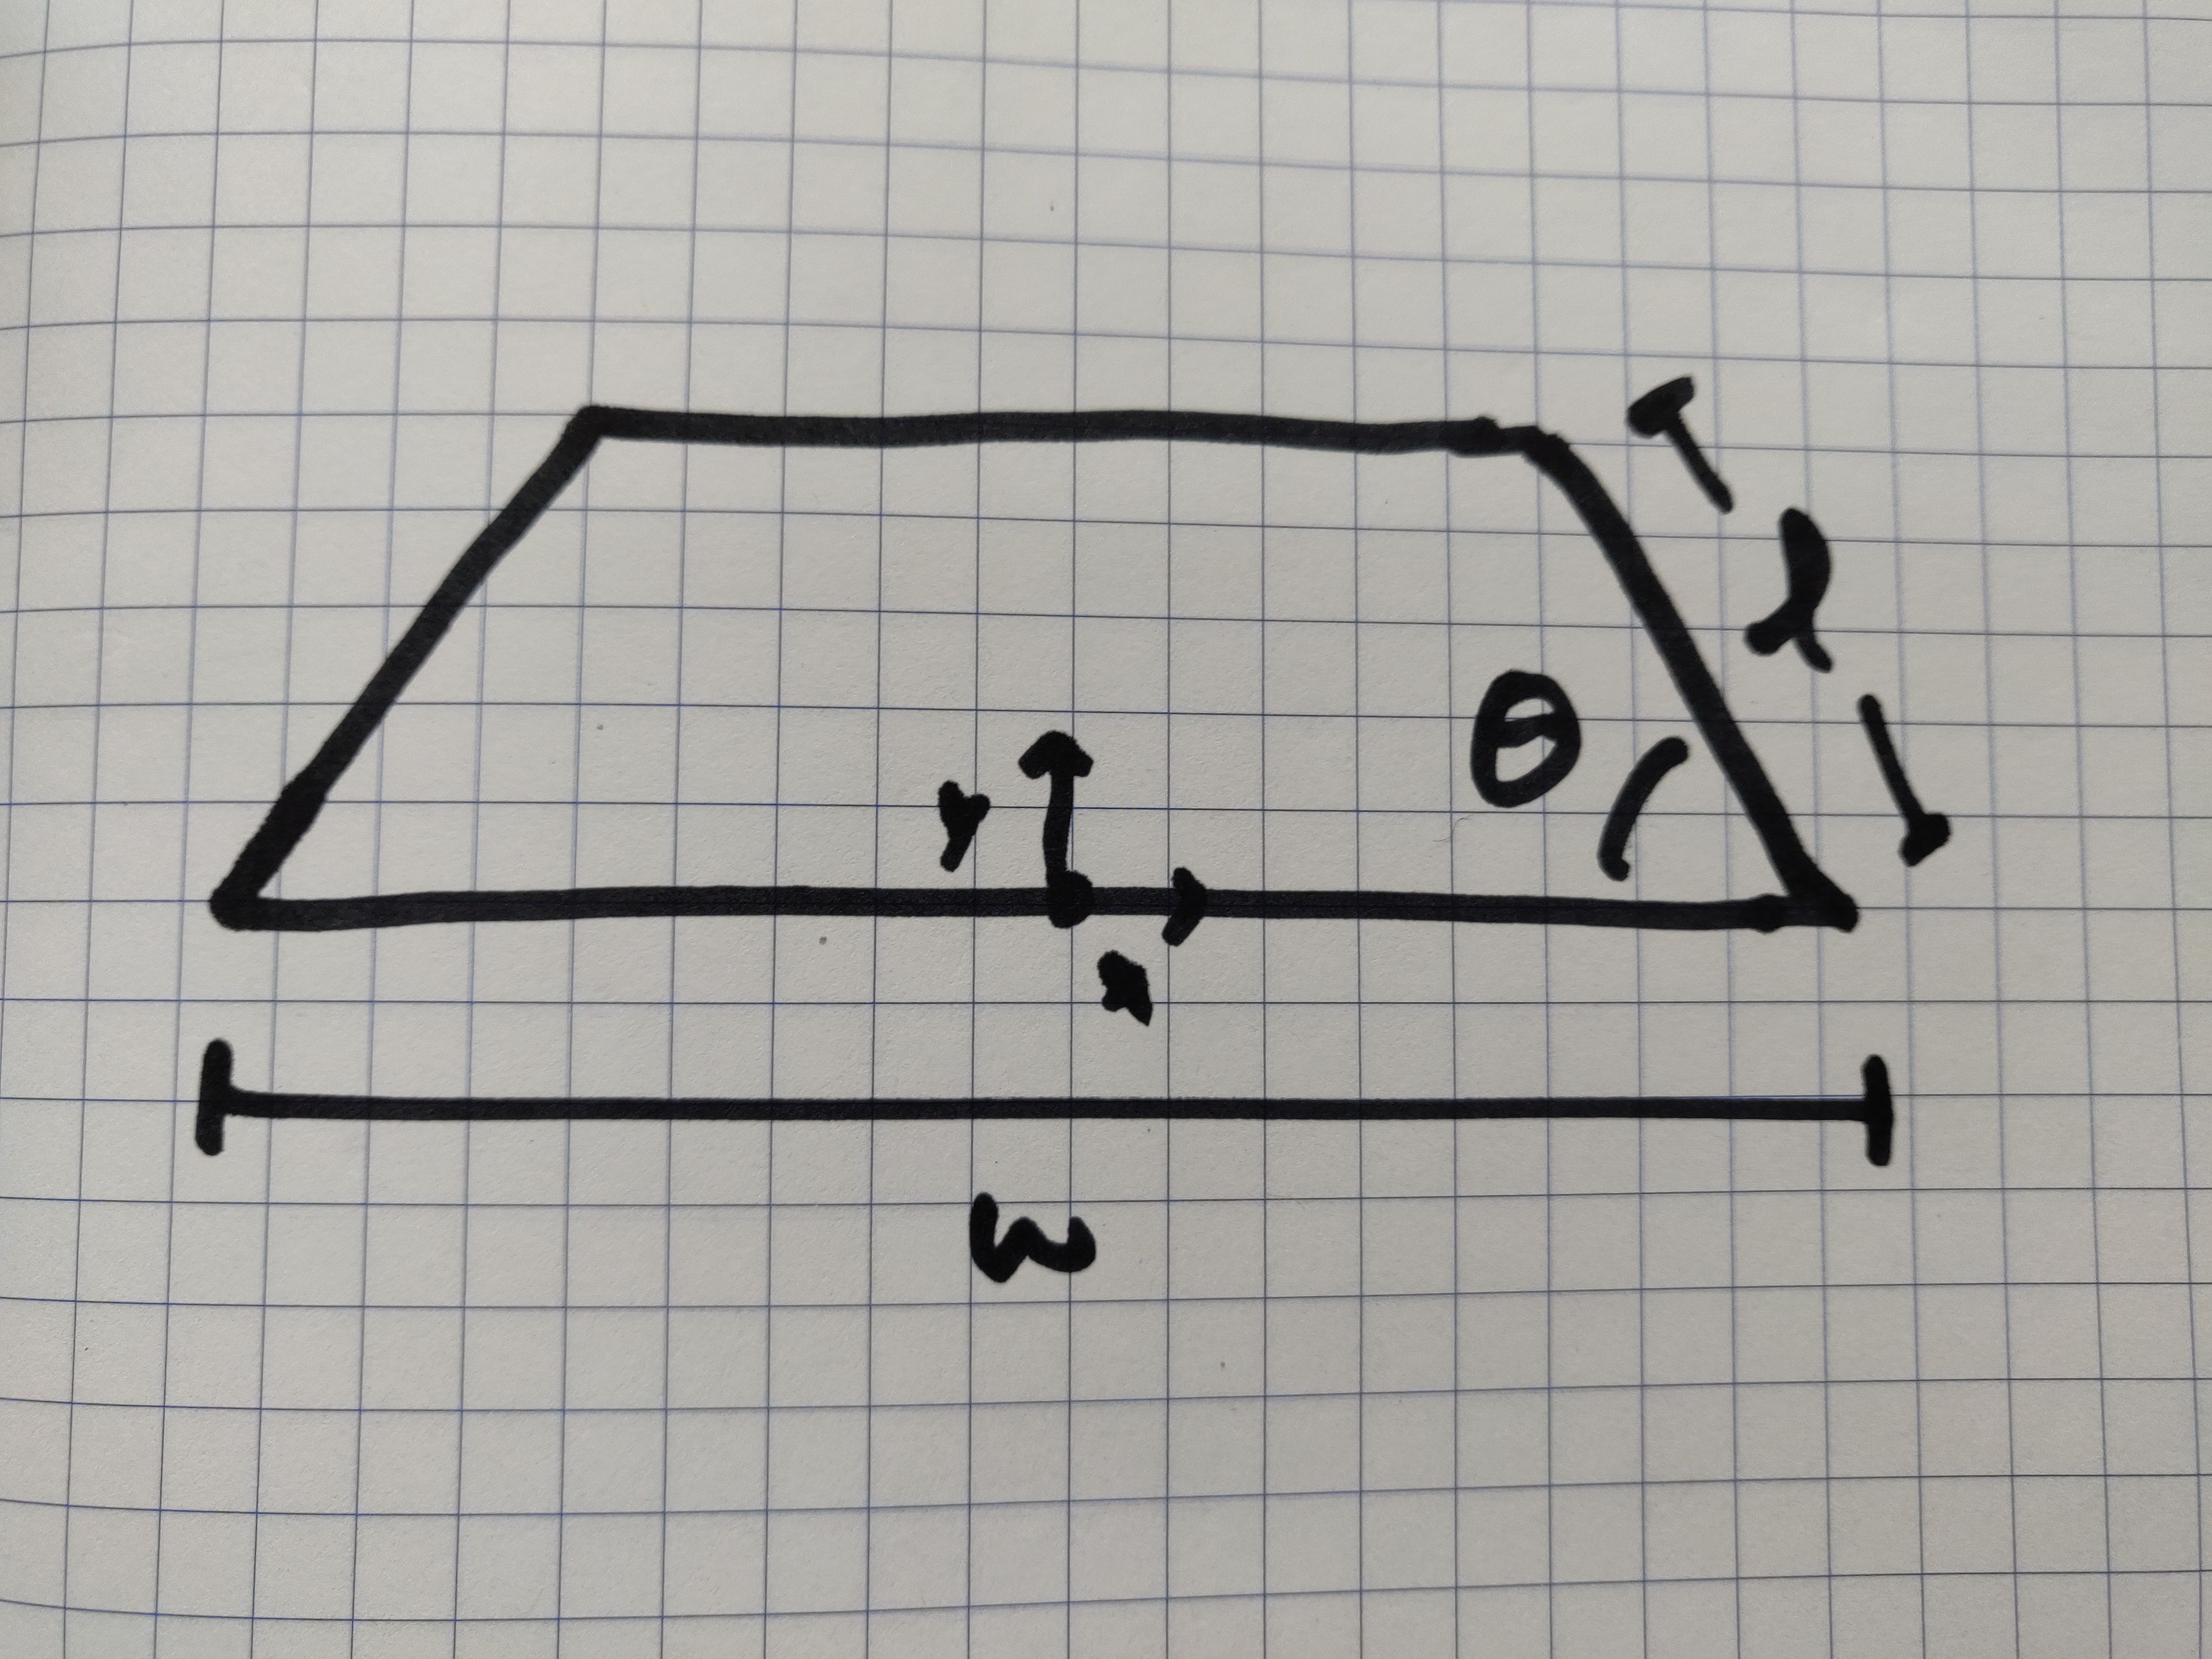 l
θ
y
x
w